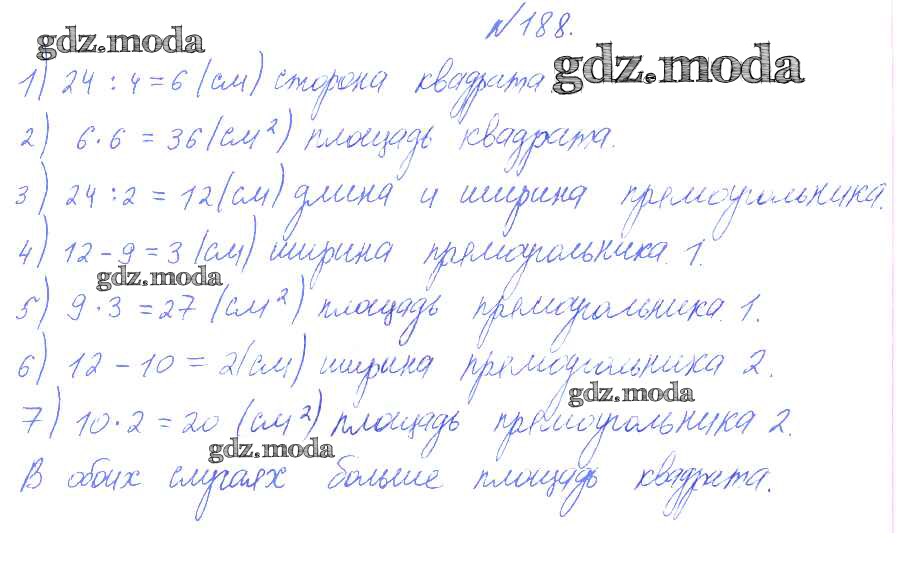 №188.
gdz.moda
1) 24 : 4 = 6 (см) сторона квадрата.
gdz.moda
2) 6·6 = 36 (см²) площадь квадрата.
3) 24 : 2 = 12 (см) длина и ширина прямоугольника.
4) 12 - 9 = 3 (см) ширина прямоугольника 1.
gdz.moda
5) 9·3 = 27 (см²) площадь прямоугольника 1.
6) 12 - 10 = 2 (см) ширина прямоугольника 2.
gdz.moda
7) 10·2 = 20 (см²) площадь прямоугольника 2.
gdz.moda
В обоих случаях больше площадь квадрата.